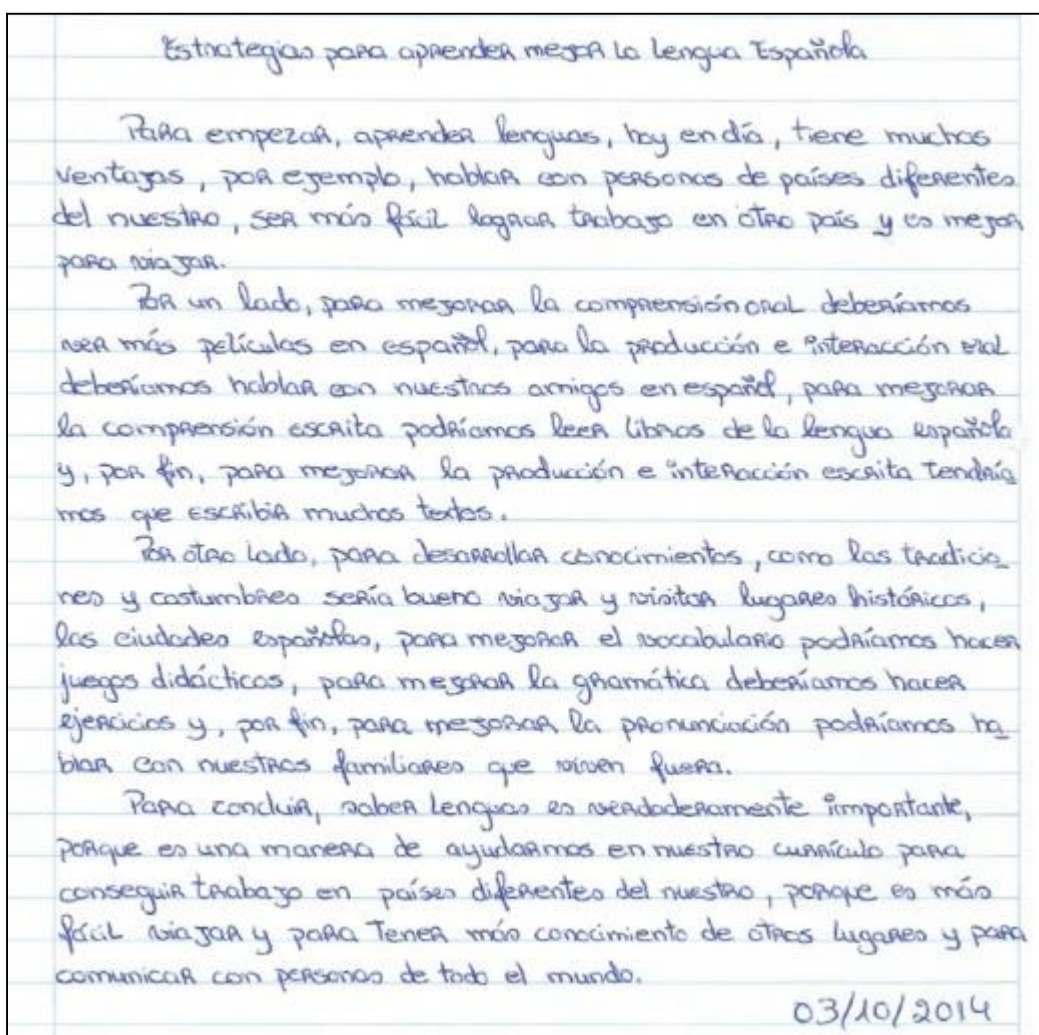 Estrategias para aprender mejor la lengua Española
Para empezar, aprender lenguas, hoy en día, tiene muchas
ventajas, por ejemplo, hablar con personas de países diferentes
del nuestro, ser más fácil lograr trabajo en otro país y es mejor
para viajar.
Por un lado, para mejorar la comprensión oral deberíamos
ver más películas en español, para la producción e interacción oral
deberíamos hablar con nuestros amigos en español, para mejorar
la comprensión escrita podríamos leer libros de la lengua española
y, por fin, para mejorar la producción e interacción escrita tendría
mos que escribir muchos textos.
Por otro lado, para desarrollar conocimientos, como las tradicio_
nes y costumbres sería bueno viajar y visitar lugares históricos,
las ciudades españolas, para mejorar el vocabulario podríamos hacer
juegos didácticos, para mejorar la gramática deberíamos hacer
ejercicios y, por fin, para mejorar la pronunciación podríamos ha_
blar con nuestros familiares que viven fuera.
Para concluir, saber lenguas es verdaderamente importante,
porque es una manera de ayudarmos en nuestro currículo para
conseguir trabajo en países diferentes del nuestro, porque es más
fácil viajar y para tener más conocimiento de otros lugares y para
comunicar con personas de todo el mundo.
03/10/2014